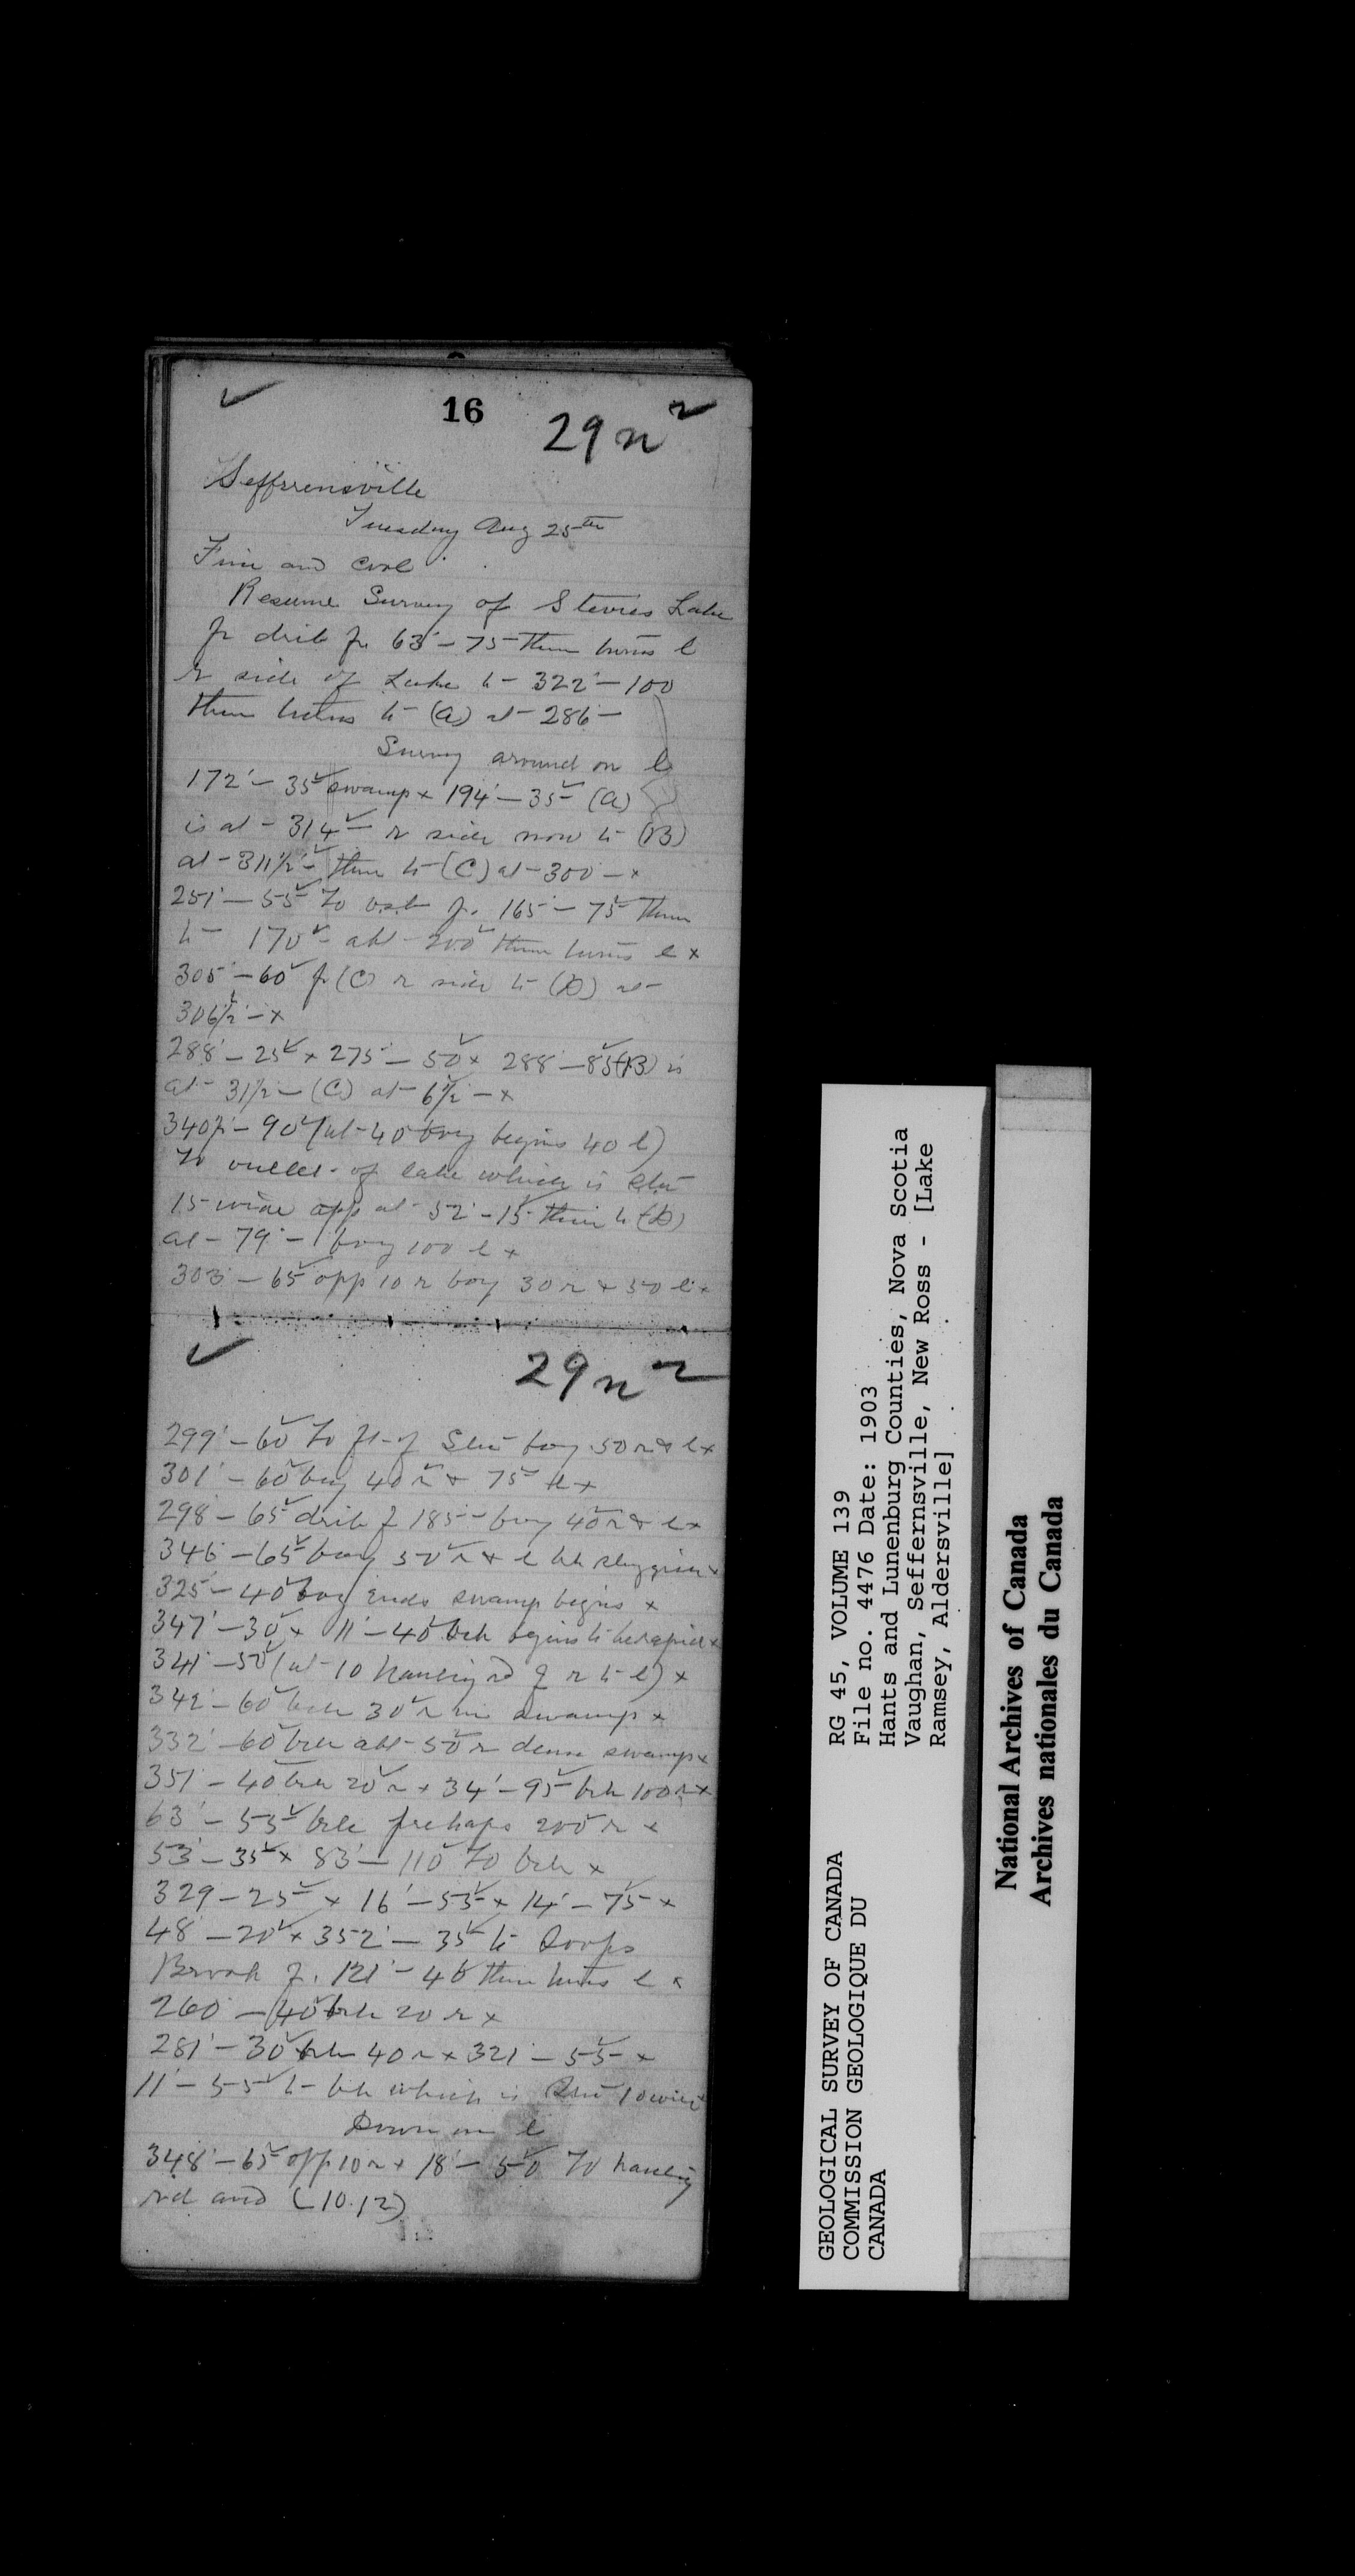 16
29 n 2
Seffrrensville
Tuesday Aug 25th
Fine and cool
Resume Survey of Stevies Lake
fr drib fr 63' - 75 then turns l
r side of Lake to 322' - 100
then turns to (A) at 286 -
Survey around on l
172' - 35 swamp x 194' - 35 (A)
is at - 314 - r side now to (B)
at - 311 1/2 - then to (C) at - 300 - x
251' - 55 To fr. 165' - 75 then
to 170 - abt - 200 then turns l x
305' - 60 fr (C) r side to (D) at -
306 1/2 - x
288' - 25 x 275' - 50 x 288' - 85 (B) is
at - 31 1/2 - (C) at - 6 1/2 - x
340 - 90 (at - 40 bog begins 40 l)
To outlet of lake which is
15 wide opp at - 52' - 15 then to (D)
at - 79' - bog 100 l x
303' - 65 opp 10 r bog 30 r + 50 l x
29 n 2
299' - 60 To ft - of bog 50 r & l x
301' - 60 bog 40 r + 75 l x
298' - 65 drib f 185 - bog 40 r & l x
346' - 65 bog 50 r & l bk sluggish x
325' - 40 bog ends swamp begins x
347' - 30 x 11' - 40 brk begins to be rapid x
341' - 50 (at - 10 hauling rd f r to l) x
342' - 60 brk 30 r in swamp x
332' - 60 brk abt - 50 r dense swamp x
351' - 40 brk 20 r x 34' - 95 brk 100 r x
63' - 55 brk perhaps 200 r x
53' - 35 x 83' - 110 To brk x
329 - 25 x 16' - 55 x 14' - 75 x
48' - 20 x 352' - 35 to
Brook f. 121' - 40 then turns l x
260' - 40 brk 20 r x
281' - 30 brk 40 r x 321' - 55 x
11' - 55 to brk which is 10 wide
Down on l
348' - 65 opp 10 r x 18' - 50 To hauling
rd and (10.12)
RG 45, VOLUME 139
File no. 4476 Date: 1903
Hants and Lunenburg Counties, Nova Scotia
Vaughan, Seffernsville, New Ross - [Lake
Ramsey, Aldersville]
GEOLOGICAL SURVEY OF CANADA
COMMISSION GEOLOGIQUE DU
CANADA
National Archives of Canada
Archives nationales du Canada